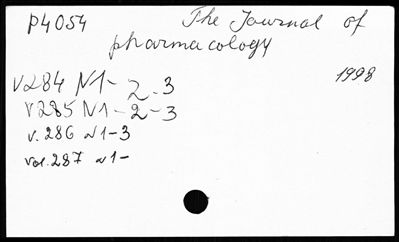 P4054 The Journal of
pharmacology
1998
V284 N1-2-3
V285 N1-2-3
v. 286 N1-3
vol. 287 N1-